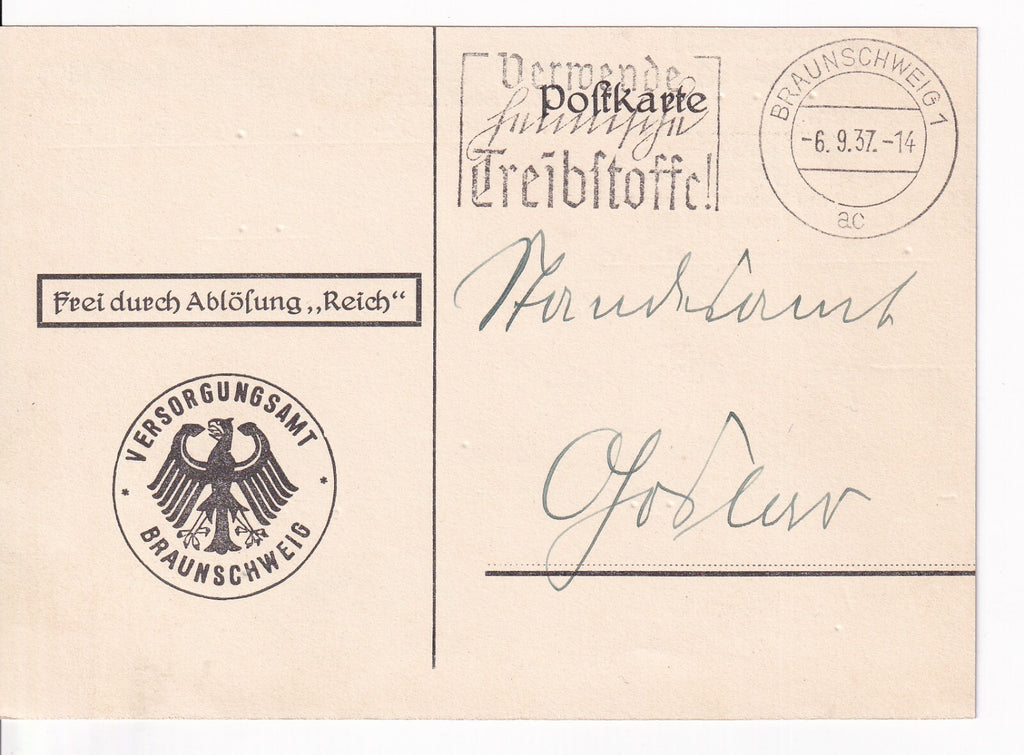 Verwende
heimische
Treibstoffe!
Postkarte
BRAUNSCHWEIG 1
-6.9.37.-14
ac
Frei durch Ablösung „Reich“
VERSORGUNGSAMT
* *
BRAUNSCHWEIG
Standesamt
Goslar